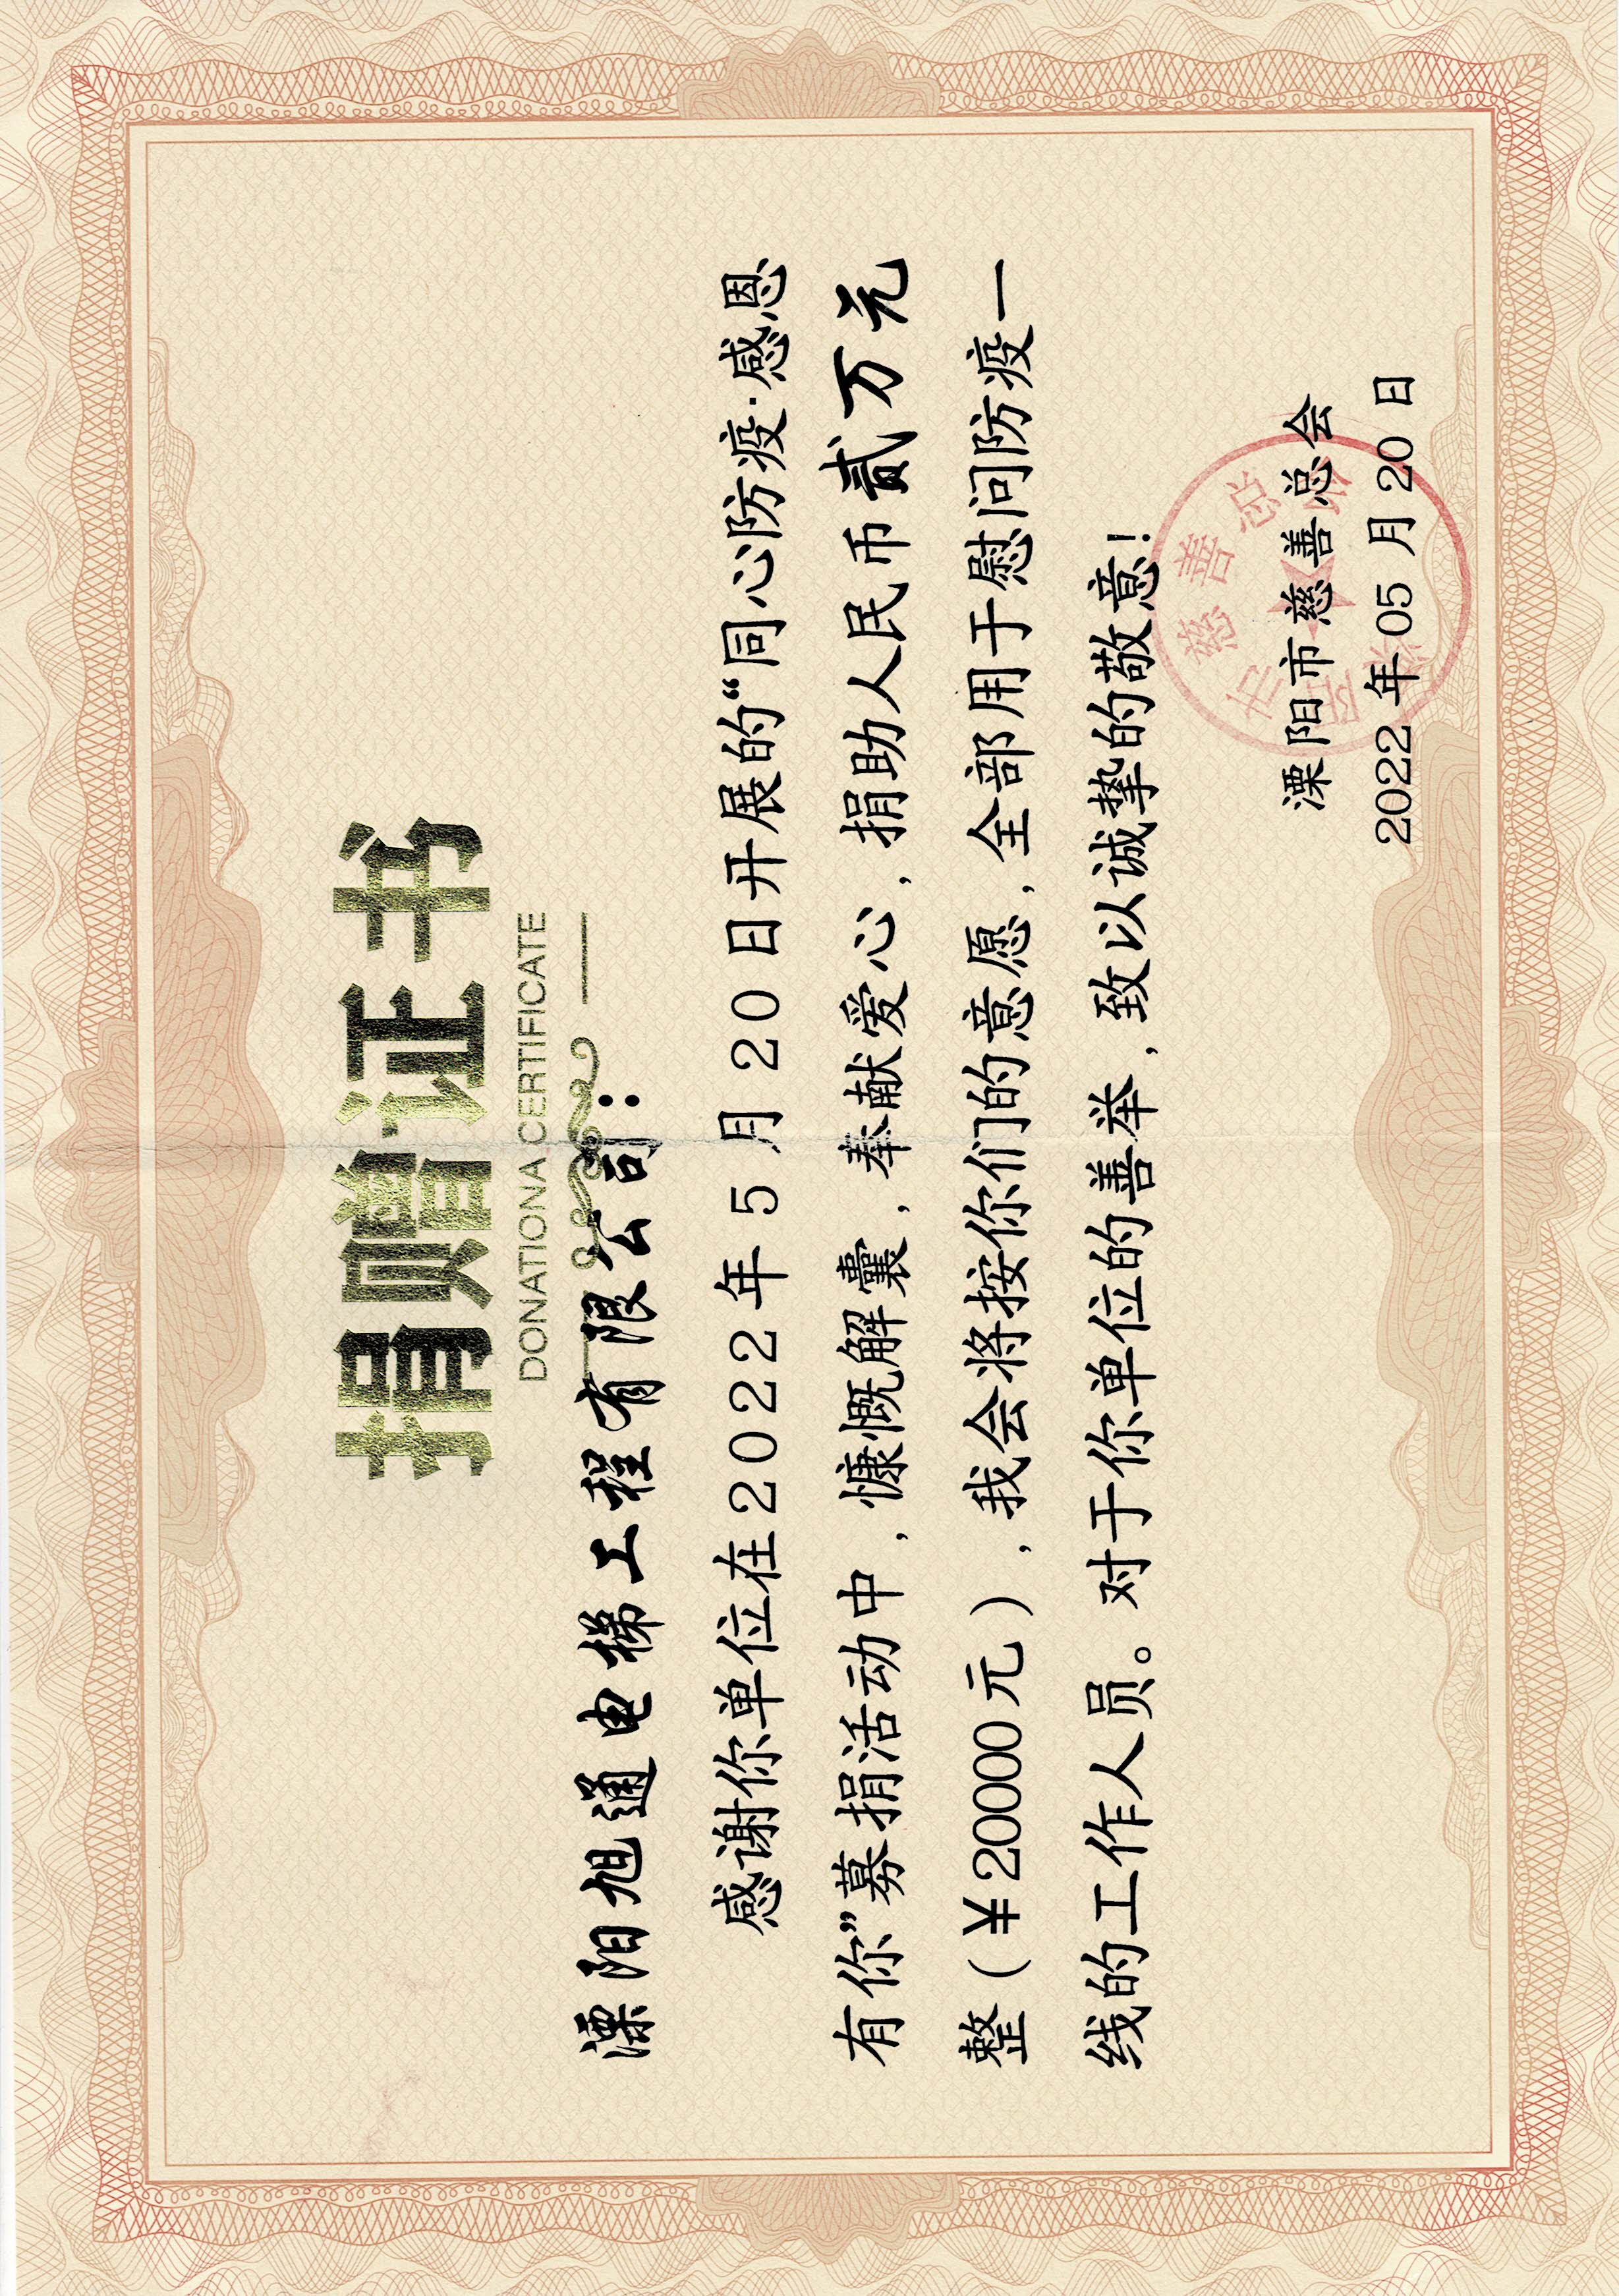 捐赠证书
DONATIONA CERTIFICATE
溧阳旭通电梯工程有限公司：
感谢你单位在2022年5月20日开展的“同心防疫·感恩
有你”募捐活动中，慷慨解囊，奉献爱心，捐助人民币贰万元
整（￥20000元），我会将按你们的意愿，全部用于慰问防疫一
线的工作人员。对于你单位的善举，致以诚挚的敬意！
溧阳市慈善总会
2022年05月20日
溧阳市慈善总会